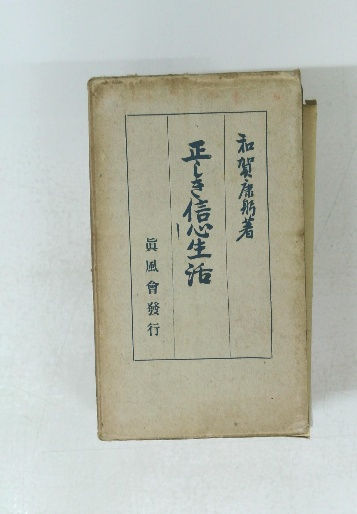 和賀康躬著
正しき信心生活
眞風會發行